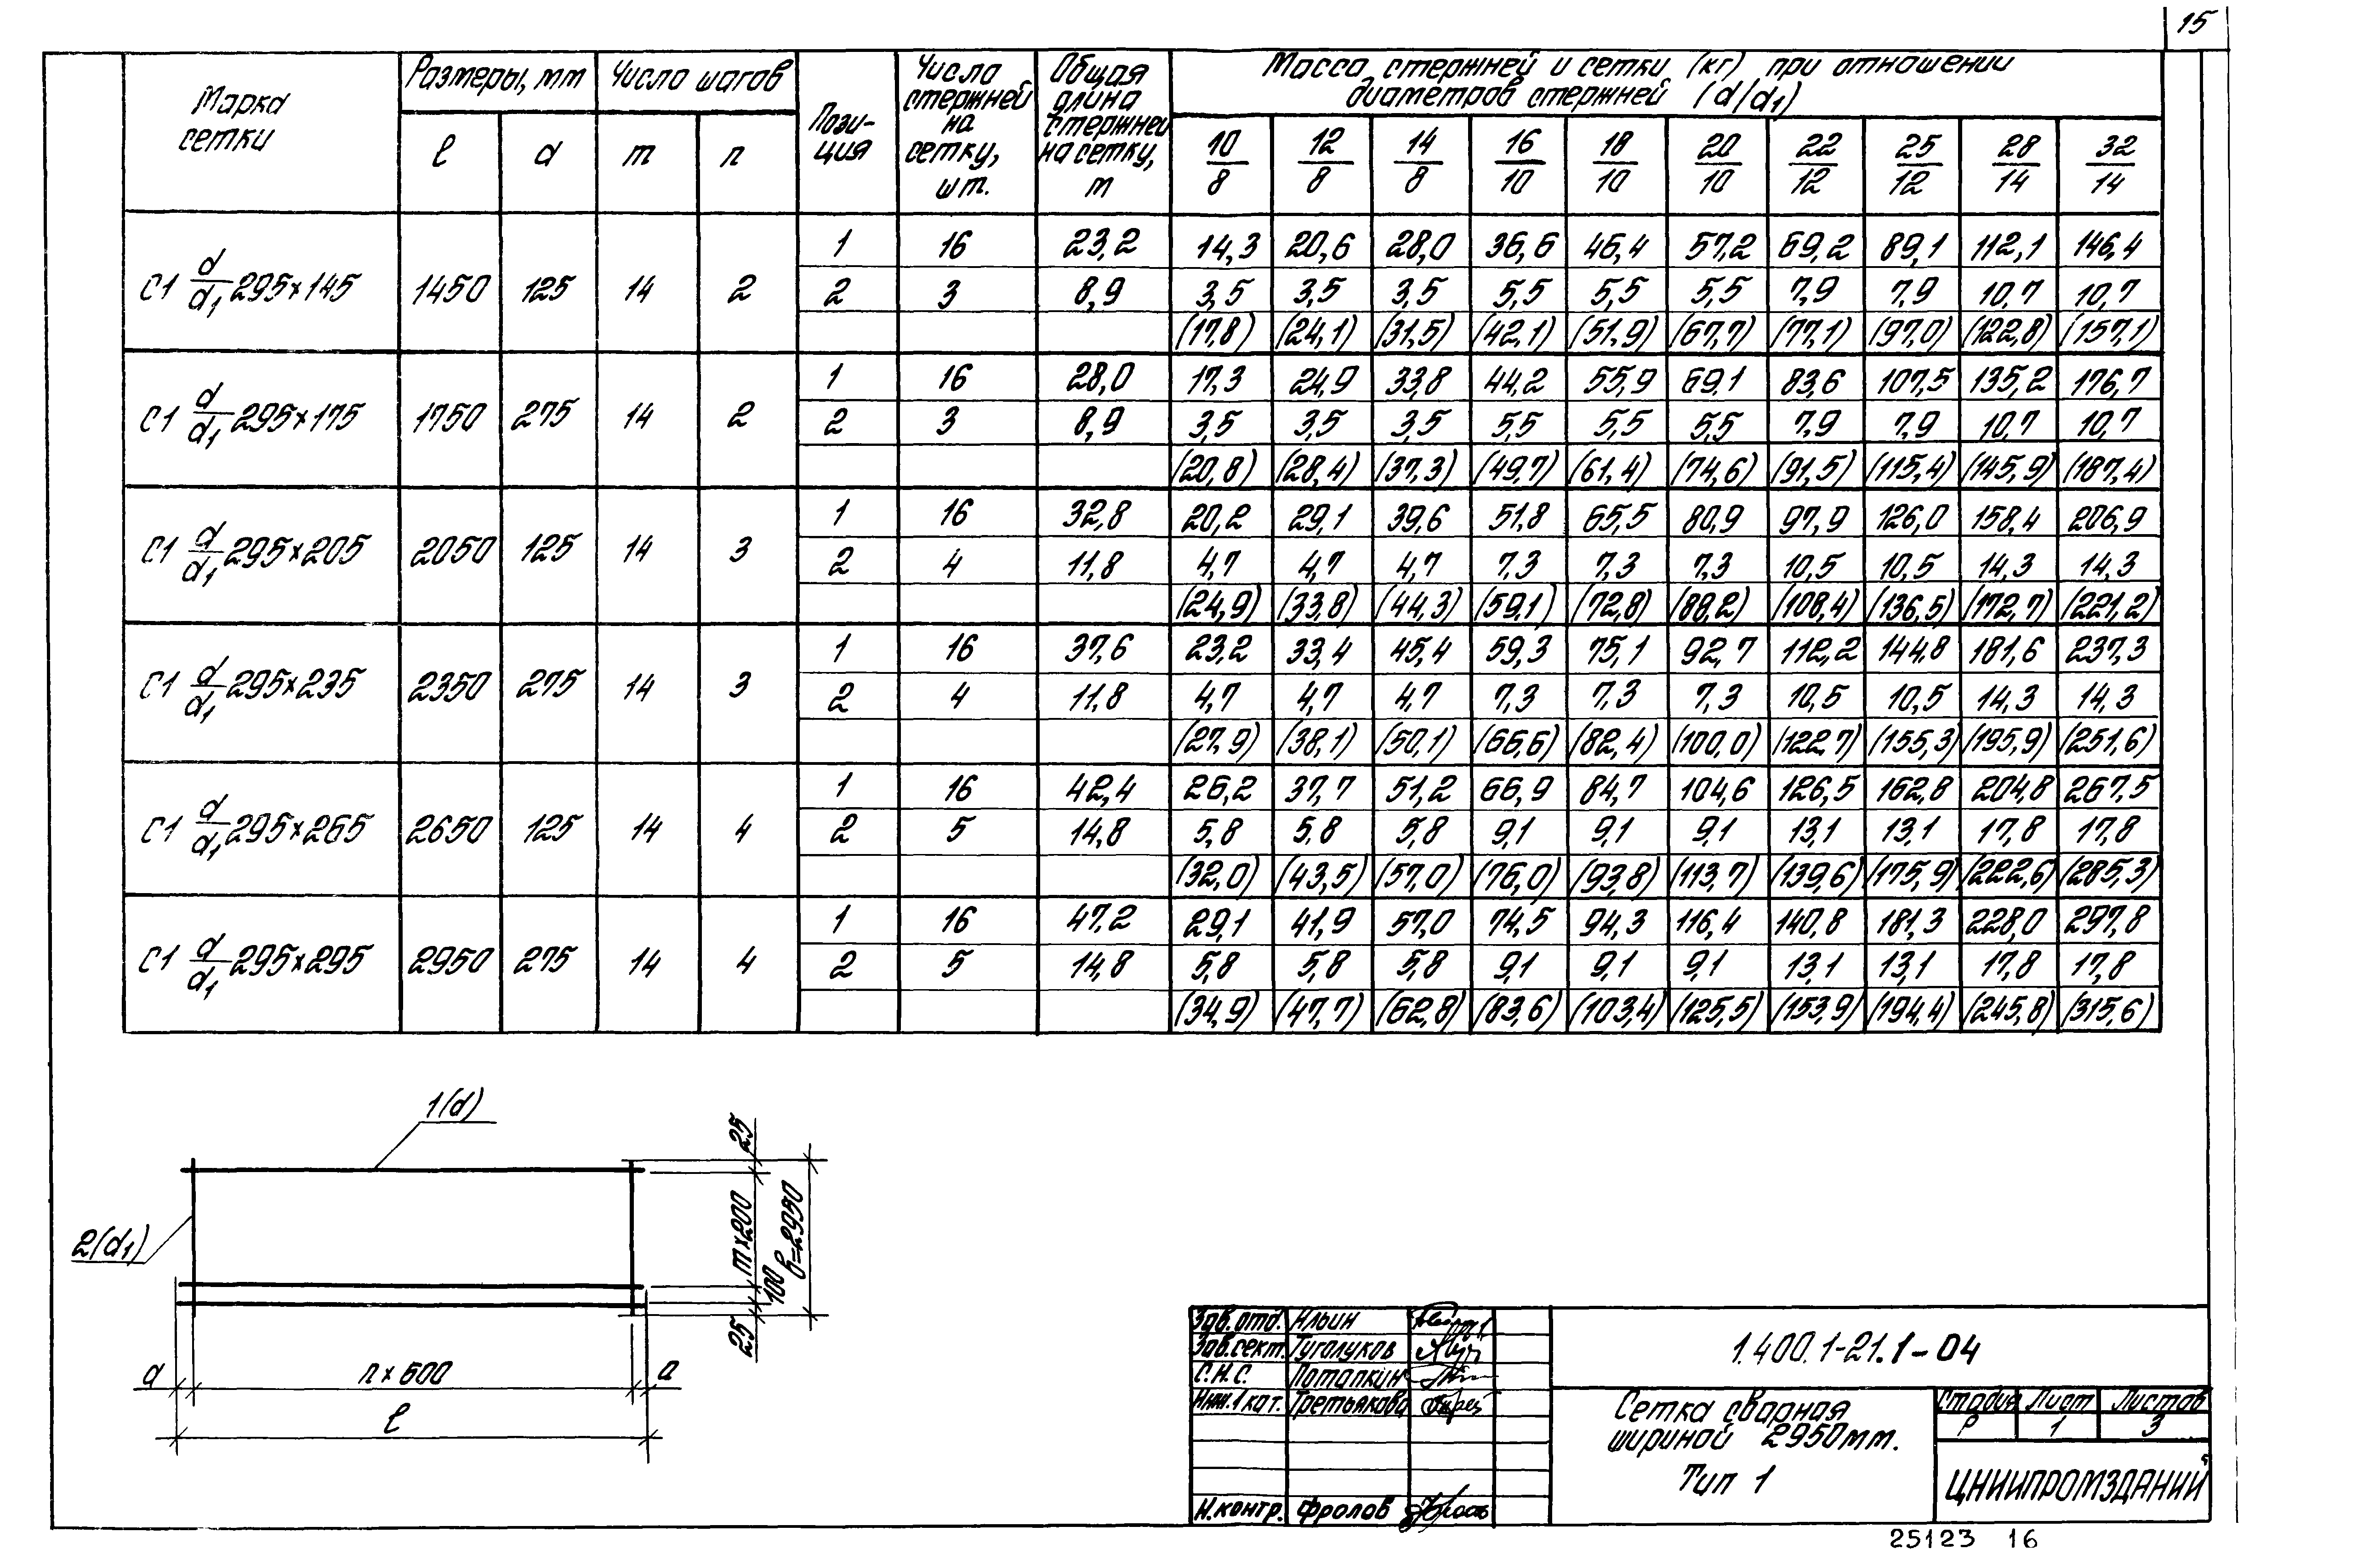 15
Марка сетки | Размеры, мм | Число шагов | Пози-ция | Число стержней на сетку, шт. | Общая длина стержней на сетку, м | Масса стержней и сетки (кг) при отношении диаметров стержней (d/d1)
l | а | m | n | 10/8 | 12/8 | 14/8 | 16/10 | 18/10 | 20/10 | 22/12 | 25/12 | 28/14 | 32/14
1 | 16 | 23,2 | 14,3 | 20,6 | 28,0 | 36,6 | 46,4 | 57,2 | 69,2 | 89,1 | 112,1 | 146,4
С1 d/d1 295×145 | 1450 | 125 | 14 | 2 | 2 | 3 | 8,9 | 3,5 | 3,5 | 3,5 | 5,5 | 5,5 | 5,5 | 7,9 | 7,9 | 10,7 | 10,7
(17,8) | (24,1) | (31,5) | (42,1) | (51,9) | (67,7) | (77,1) | (97,0) | (122,8) | (157,1)
1 | 16 | 28,0 | 17,3 | 24,9 | 33,8 | 44,2 | 55,9 | 69,1 | 83,6 | 107,5 | 135,2 | 176,7
С1 d/d1 295×175 | 1750 | 275 | 14 | 2 | 2 | 3 | 8,9 | 3,5 | 3,5 | 3,5 | 5,5 | 5,5 | 5,5 | 7,9 | 7,9 | 10,7 | 10,7
(20,8) | (28,4) | (37,3) | (49,7) | (61,4) | (74,6) | (91,5) | (115,4) | (145,9) | (187,4)
1 | 16 | 32,8 | 20,2 | 29,1 | 39,6 | 51,8 | 65,5 | 80,9 | 97,9 | 126,0 | 158,4 | 206,9
С1 d/d1 295×205 | 2050 | 125 | 14 | 3 | 2 | 4 | 11,8 | 4,7 | 4,7 | 4,7 | 7,3 | 7,3 | 7,3 | 10,5 | 10,5 | 14,3 | 14,3
(24,9) | (33,8) | (44,3) | (59,1) | (72,8) | (88,2) | (108,4) | (136,5) | (172,7) | (221,2)
1 | 16 | 37,6 | 23,2 | 33,4 | 45,4 | 59,3 | 75,1 | 92,7 | 112,2 | 144,8 | 181,6 | 237,3
С1 d/d1 295×235 | 2350 | 275 | 14 | 3 | 2 | 4 | 11,8 | 4,7 | 4,7 | 4,7 | 7,3 | 7,3 | 7,3 | 10,5 | 10,5 | 14,3 | 14,3
(27,9) | (38,1) | (50,1) | (66,6) | (82,4) | (100,0) | (122,7) | (155,3) | (195,9) | (251,6)
1 | 16 | 42,4 | 26,2 | 37,7 | 51,2 | 66,9 | 84,7 | 104,6 | 126,5 | 162,8 | 204,8 | 267,5
С1 d/d1 295×265 | 2650 | 125 | 14 | 4 | 2 | 5 | 14,8 | 5,8 | 5,8 | 5,8 | 9,1 | 9,1 | 9,1 | 13,1 | 13,1 | 17,8 | 17,8
(32,0) | (43,5) | (57,0) | (76,0) | (93,8) | (113,7) | (139,6) | (175,9) | (222,6) | (285,3)
1 | 16 | 47,2 | 29,1 | 41,9 | 57,0 | 74,5 | 94,3 | 116,4 | 140,8 | 181,3 | 228,0 | 297,8
С1 d/d1 295×295 | 2950 | 275 | 14 | 4 | 2 | 5 | 14,8 | 5,8 | 5,8 | 5,8 | 9,1 | 9,1 | 9,1 | 13,1 | 13,1 | 17,8 | 17,8
(34,9) | (47,7) | (62,8) | (83,6) | (103,4) | (125,5) | (153,9) | (194,4) | (245,8) | (315,6)
1(d)
2(d1)
25
m×200
100
в=2950
25
а
n×600
а
l
Зав. отд. Ильин
Зав. сект. Туголуков
С.Н.С. Потапкин
Инж. 1 кат. Третьякова
Н. контр. Фролов
1.400.1-21.1-04
Сетка сварная
шириной 2950мм.
Тип 1
Стадия Лист Листов
Р 1 3
ЦНИИПРОМЗДАНИЙ
25123 16